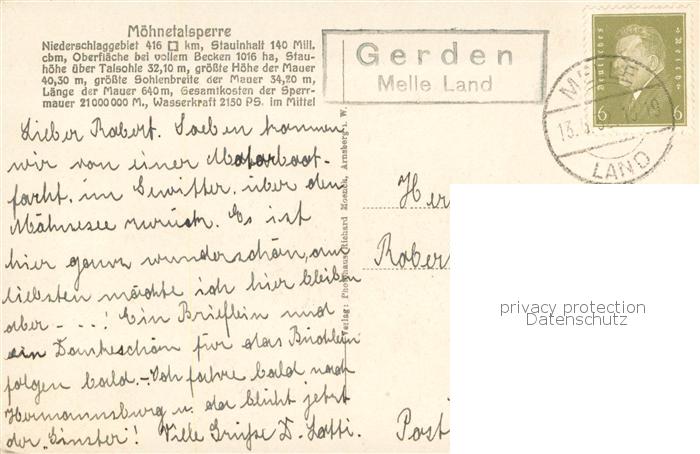 Möhnetalsperre
Niederschlaggebiet 416 □ km, Stauinhalt 140 Mill.
cbm, Oberfläche bei vollem Becken 1016 ha, Stau-
höhe über Talsohle 32,10 m, größte Höhe der Mauer
40,30 m, größte Sohlenbreite der Mauer 34,20 m,
Länge der Mauer 640 m, Gesamtkosten der Sperr-
mauer 21 000 000 M., Wasserkraft 2150 PS. im Mittel
Gerden
Melle Land
Deutsches Reich
6 6
MELLE
13.
LAND
Lieber Robert. Soeben kommen
wir von einer Motorboot-
fahrt, im Gewitter, über den
Möhnesee zurück. Es ist
hier ganz wunderschön, am
liebsten möchte ich hier bleiben
aber - - ..! Ein Brieflein und
ein Dankeschön für das Büchlein
folgen bald. - Ich fahre bald nach
Hermannsburg u. da blüht jetzt
der „Ginster"! Viele Grüße D. Lotti.
Verlag: Photohaus Richard Moenck, Arnsberg i. W.
Her
Rober
Post
privacy protection
Datenschutz